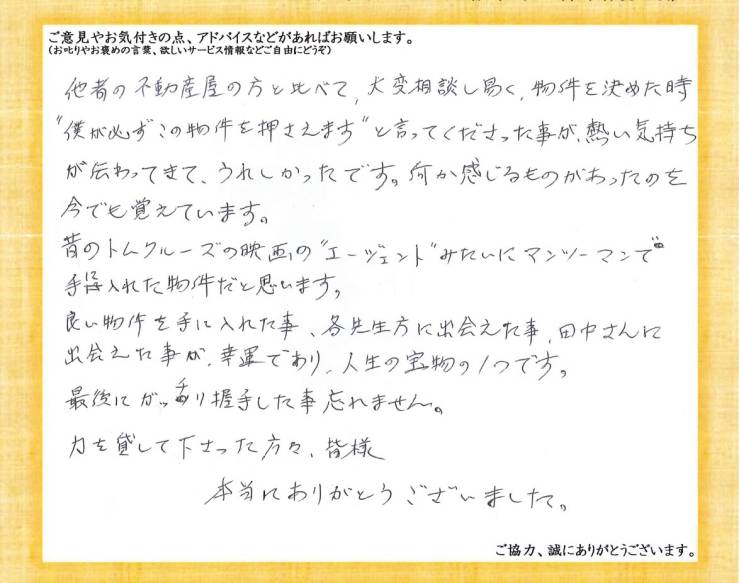 ご意見やお気付きの点、アドバイスなどがあればお願いします。
(お叱りやお褒めの言葉、欲しいサービス情報などご自由にどうぞ)
他者の不動産屋の方と比べて、大変相談し易く、物件を決めた時
"僕が必ずこの物件を押さえます"と言ってくださった事が、熱い気持ち
が伝わってきて、うれしかったです。何か感じるものがあったのを
今でも覚えています。
昔のトムクルーズの映画の"エージェント"みたいにマンツーマンで
手に入れた物件だと思います。
良い物件を手に入れた事、各先生方に出会えた事、田中さんに
出会えた事が、幸運であり、人生の宝物の1つです。
最後にガッチリ握手した事忘れません。
力を貸して下さった方々、皆様
本当にありがとうございました。
ご協力、誠にありがとうございます。